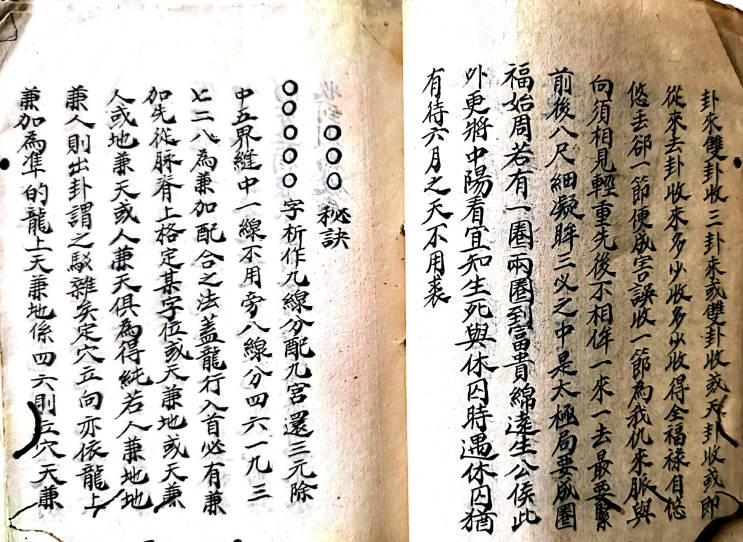 卦來雙卦收三卦來或雙卦收或天卦收或即
從來去卦收來多少收多少收得全福祿自悠
悠去卻一節便成害誤收一節為我仇來脉與
向須相見輕重先後不相侔一來一去最要緊
前後八尺細凝眸三义之中是太極局要成圈
福始周若有一圈兩圈到富貴綿遠生公侯此
外更將中陽看宜知生死與休囚時遇休囚猶
有待六月之天不用裘
○○○秘訣
○○○○○字析作九線分配九宮還三元除
中五界縫中一線不用旁八線分四六一九三
七二八為兼加配合之法蓋龍行入首必有兼
加先從脉脊上格定某字位或天兼地或天兼
人或地兼天或人兼天俱為得純若人兼地地
兼人則出卦謂之駁雜矣定穴立向亦依龍上
兼加為準的龍上天兼地係四六則立穴天兼